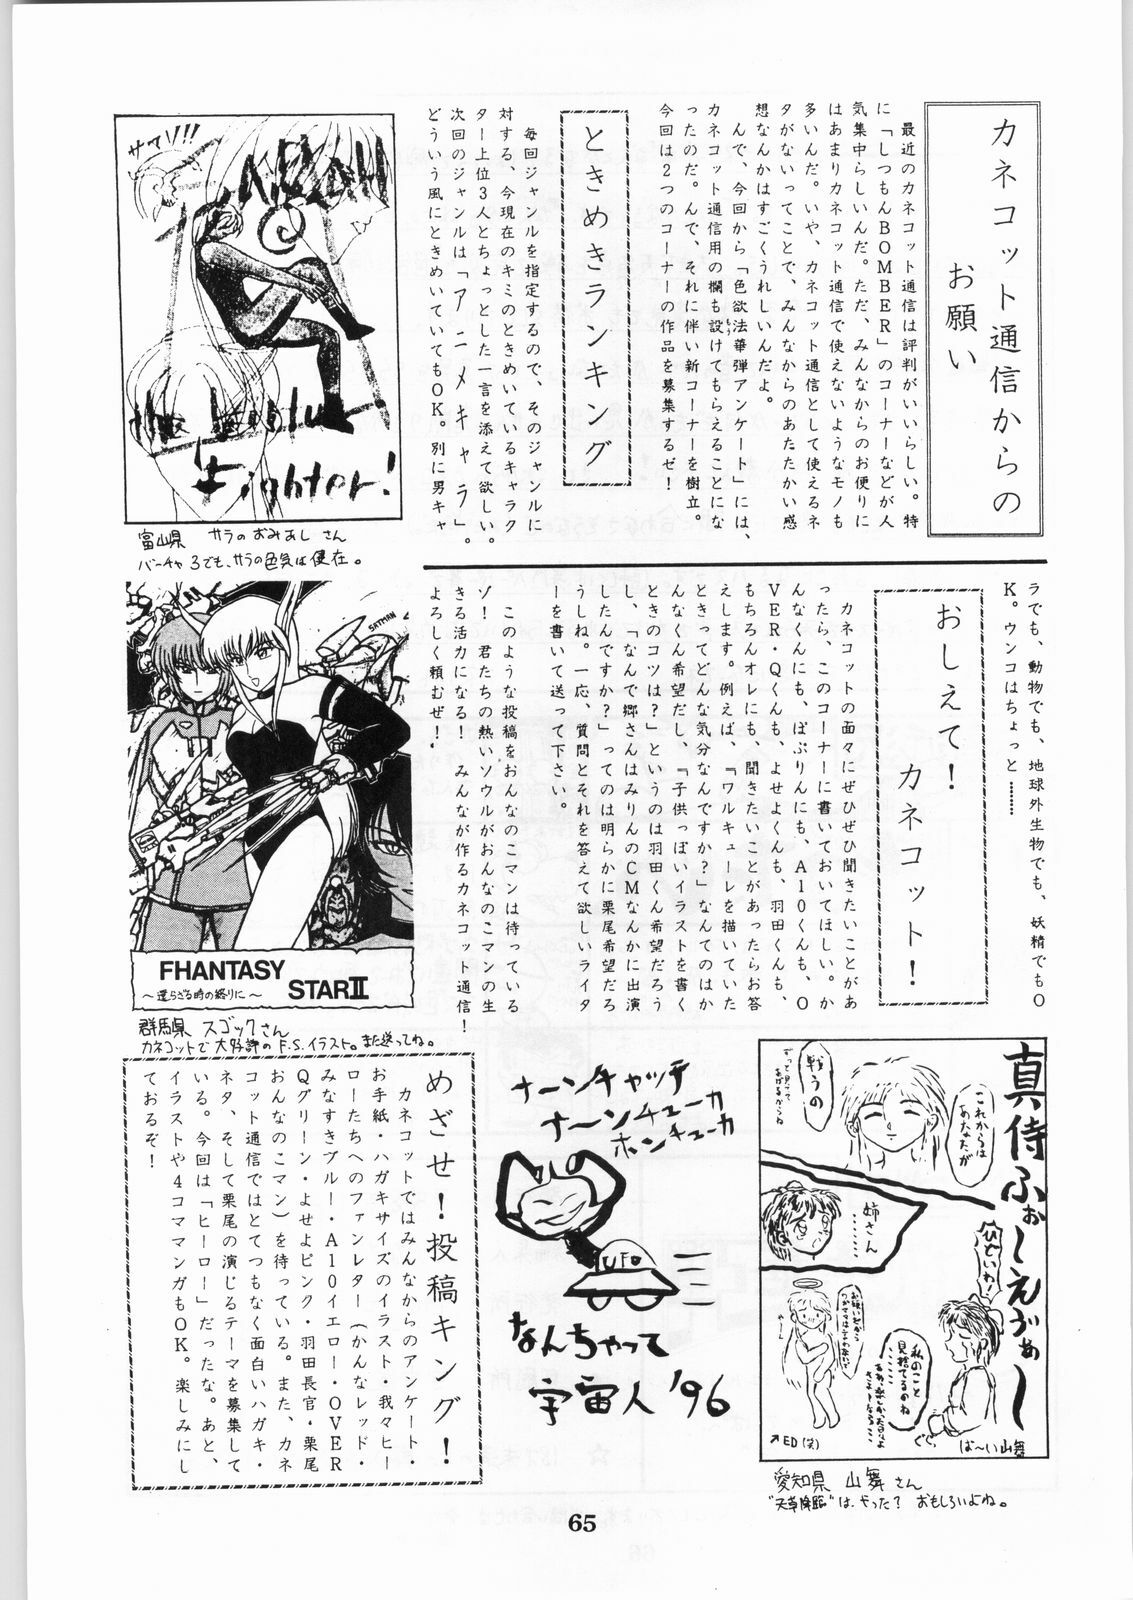 カネコット通信からの
お願い
最近のカネコット通信は評判がいいらしい。特
に「しつもんBOMBER」のコーナーなどが人
気集中らしいんだ。ただ、みんなからのお便りに
はあまりカネコット通信で使えないようなモノも
多いんだ。いや、カネコット通信として使えるネ
タがないってことで、みんなからのあたたかい感
想なんかはすごくうれしいんだよ。
んで、今回から「色欲法華弾アンケート」には、
カネコット通信用の欄も設けてもらえることにな
ったのだ。んで、それに伴い新コーナーを樹立。
今回は2つのコーナーの作品を募集するぜ!
ときめきランキング
毎回ジャンルを指定するので、そのジャンルに
対する、今現在のキミのときめいているキャラク
ター上位3人とちょっとした一言を添えて欲しい。
次回のジャンルは「アニメキャラ」。
どういう風にときめいていてもOK。別に男キャ
ラでも、動物でも、地球外生物でも、妖精でもO
K。ウンコはちょっと………
おしえて!
カネコット!
カネコットの面々にぜひぜひ聞きたいことがあ
ったら、このコーナーに書いておいてほしい。か
んなくんにも、ぽぷりんにも、A10くんも、O
VER・Qくんも、よせよくんも、羽田くんも、
もちろんオレにも、聞きたいことがあったらお答
えします。例えば、「ワルキューレを描いていた
ときってどんな気分なんですか?」なんてのはか
んなくん希望だし、「子供っぽいイラストを書く
ときのコツは?」というのは羽田くん希望だろう
し、「なんで郷さんはみりんのCMなんかに出演
したんですか?」ってのは明らかに栗尾希望だろ
うしね。一応、質問とそれを答えて欲しいライタ
ーを書いて送って下さい。
このような投稿をおんなのこマンは待っている
ゾ!君たちの熱いソウルがおんなのこマンの生
きる活力になる! みんなが作るカネコット通信!
よろしく頼むぜ!
サマソ!!
Fighter!
富山県 サラのおみあし さん
バーチャ3でも、サラの色気は健在。
SATMAN
FHANTASY
STARⅡ
〜還らざる時の終りに〜
群馬県 スゴックさん
カネコットで大好評のF.S.イラスト。また送ってね。
めざせ!投稿キング!
カネコットではみんなからのアンケート・
お手紙・ハガキサイズのイラスト・我々ヒー
ローたちへのファンレター(かんなレッド・
みなすきブルー・A10イエロー・OVER
Qグリーン・よせよピンク・羽田長官・栗尾
おんなのこマン)を待っている。また、カネ
コット通信ではとてつもなく面白いハガキ・
ネタ、そして栗尾の演じるテーマを募集して
いる。今回は「ヒーロー」だったな。あと、
イラストや4コママンガもOK。楽しみにし
ておるぞ!
ナーンチャッテ
ナーンチューカ
ホンチューカ
UFO
なんちゃって
宇宙人'96
真侍ふぉーえゔぁー
これからは
あなたが
戦うの
ずっと見て
あげるからね
姉さん
………
ひどいわ!
私のこと
見捨てるのね
↗ED(笑)
ば〜い山舞
愛知県 山舞さん
"天草降臨"は、やった? おもしろいよね。
65